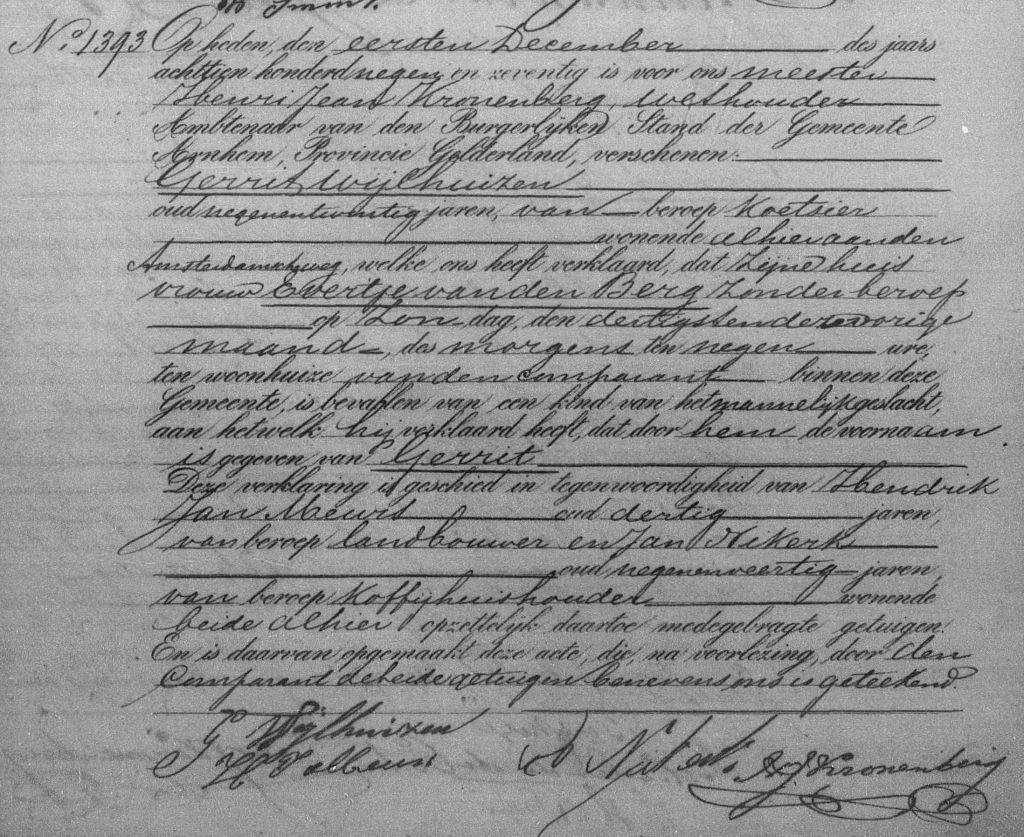 No. 1393 Op heden, den eersten December des jaars
achttien honderd negen en zeventig is voor ons meester
Henri Jean Kronenberg, Wethouder
Ambtenaar van den Burgerlijken Stand der Gemeente
Arnhem, Provincie Gelderland, verschenen:
Gerrit Wijlhuizen
oud negenentwintig jaren, van beroep Koetsier
wonende alhier aan den
Amsterdamscheweg, welke ons heeft verklaard, dat zijne huis
vrouw Evertje van den Berg zonder beroep
op Zondag, den dertigsten der vorige
maand, des morgens ten negen ure,
ten woonhuize van den comparant binnen deze
Gemeente, is bevallen van een kind van het mannelijk geslacht,
aan hetwelk hij verklaard heeft, dat door hem de voornaam
is gegeven van Gerrit
Deze verklaring is geschied in tegenwoordigheid van Hendrik
Jan Meurs oud dertig jaren,
van beroep landbouwer en Jan
oud negenenveertig jaren,
van beroep Koffijhuishouder wonende
beide alhier opzettelijk daartoe medegebragte getuigen.
En is daarvan opgemaakt deze acte, die, na voorlezing, door den
Comparant de beide getuigen benevens ons is geteekend.
G Wijlhuizen
HJKronenberg